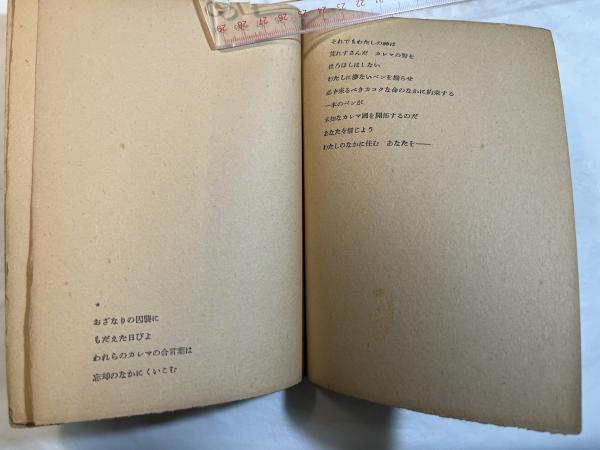 *
おざなりの因襲に
もだえた日びよ
われらのカレマの合言葉は
忘却のなかにくいこむ
それでもわたしの神は
荒れすさんだ カレマの野を
ほろぼしはしない
わたしに儚ないペンを握らせ
必ず来るべきカコクな命のなかに約束する
一本のペンが
未知なカレマ國を開拓するのだ
あなたを信じよう
わたしのなかに住む あなたを――